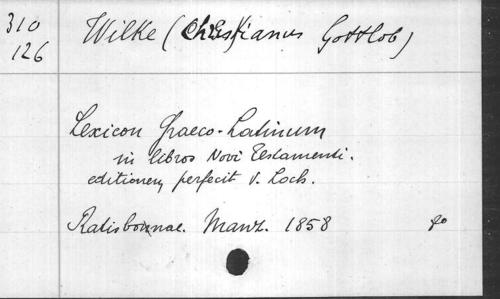 310
126
Wilke (Christianus Gottlob)
Lexicon Graeco-Latinum
in libros Novi Testamenti.
editionem perfecit V. Loch.
Ratisbonae. Manz. 1858